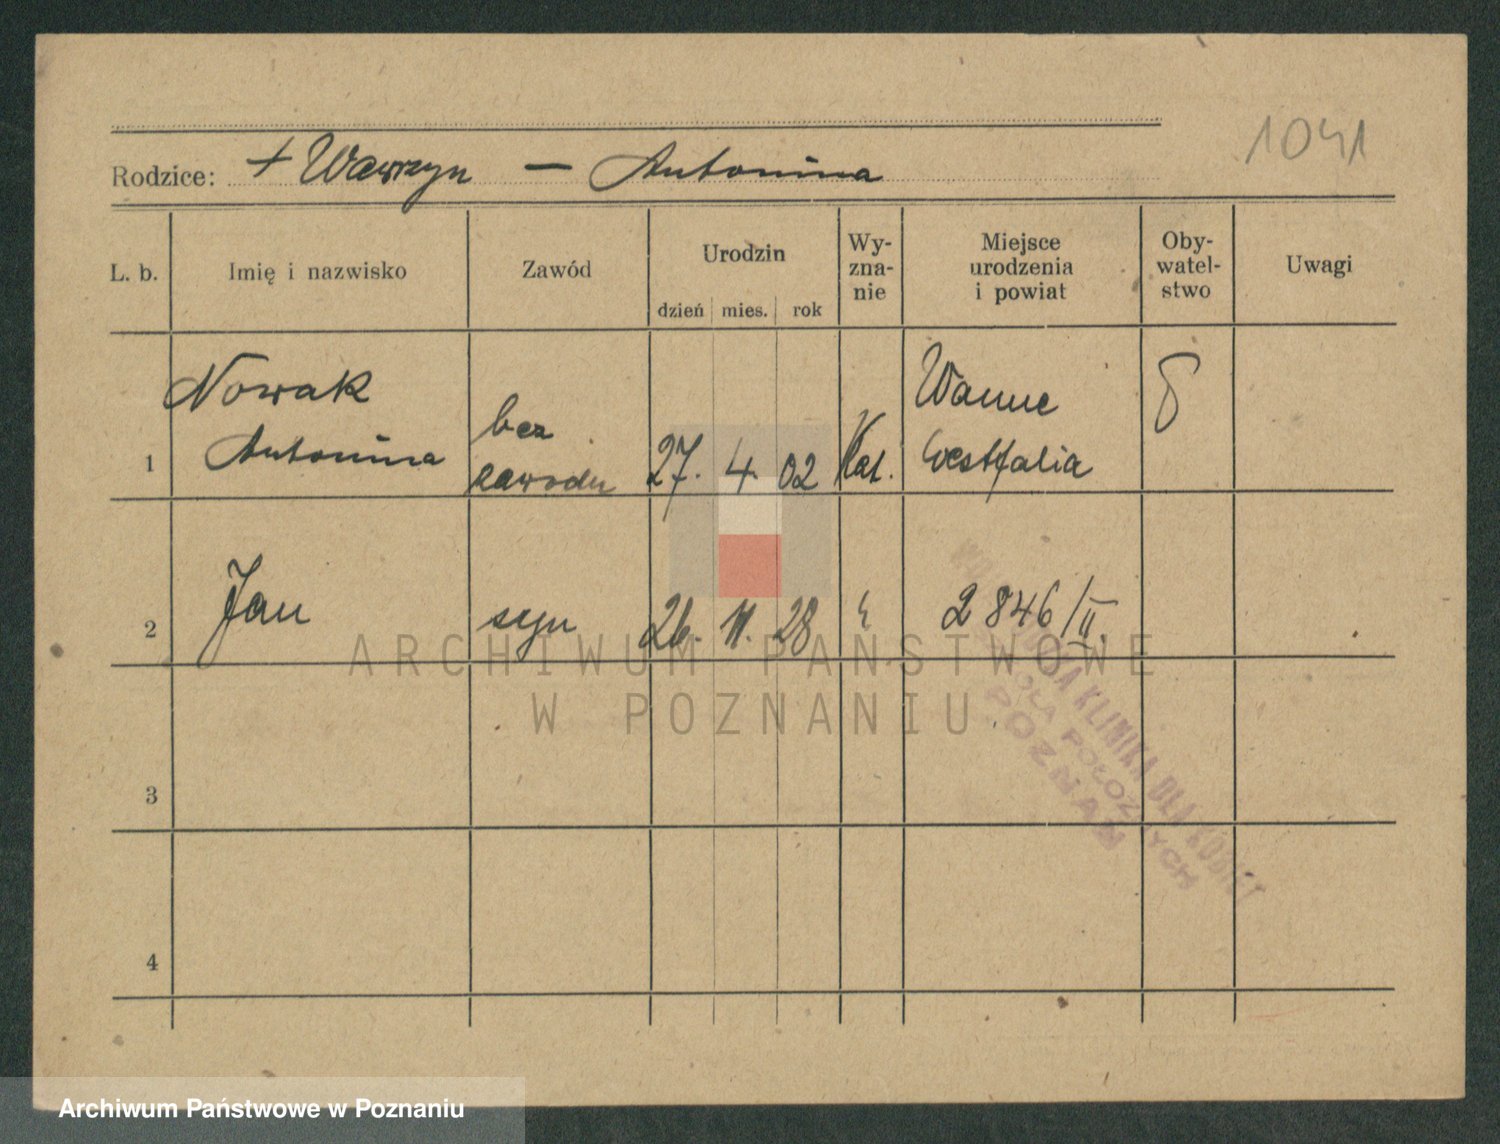 1041
Rodzice: + Wawrzyn — Antonina
L. b. Imię i nazwisko Zawód Urodzin dzień mies. rok Wy-zna-nie Miejsce urodzenia i powiat Oby-watel-stwo Uwagi
Nowak
Antonina
1
bez
zawodu
27. 4. 02
Kat.
Wanne
Westfalia
2 Jan syn 26. 11. 28 " 2846/II.
3
4
KLINIKA DLA KOBIET
POŁOŻNYCH
POZNAŃ
ARCHIWUM PAŃSTWOWE
W POZNANIU
Archiwum Państwowe w Poznaniu